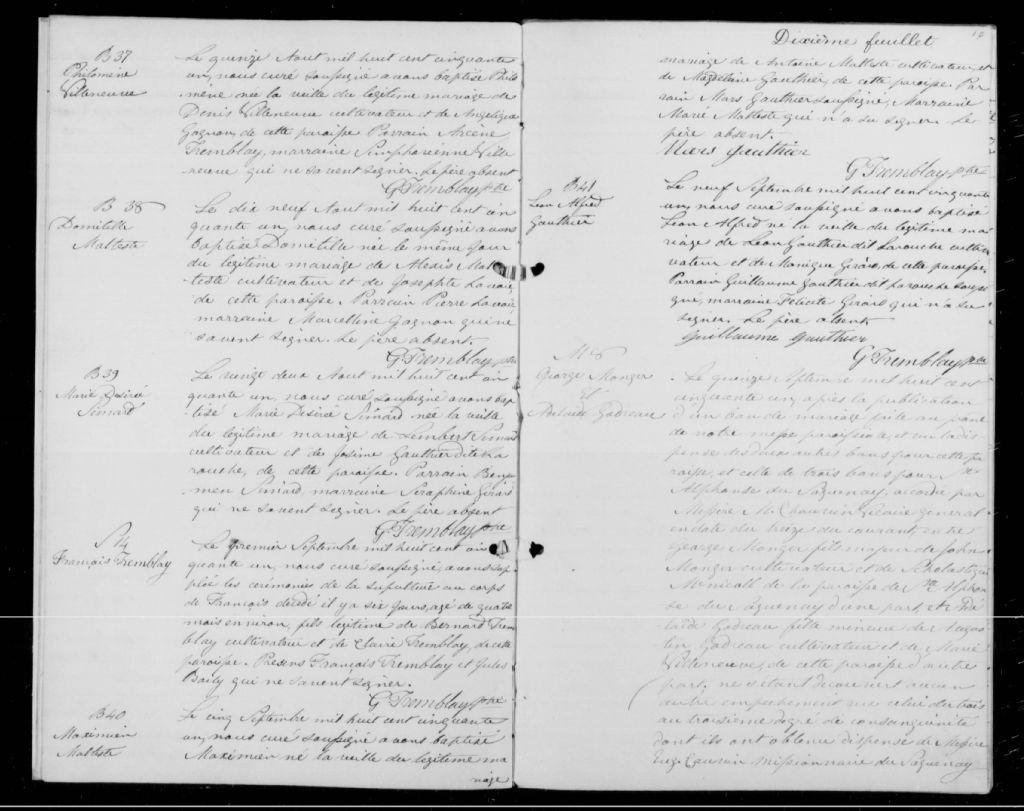 B 37
Philomène
Villeneuve
Le quinze Aout mil huit cent cinquante
un, nous curé soussigné avons baptisé Philo
mène née la veille du légitime mariage de
Denis Villeneuve cultivateur et de Angélique
Gagnon, de cette paroisse Parrain Arcène
Tremblay, marraine Simphorienne Ville
neuve qui ne savent signer. Le père absent
G Tremblay ptre
B 38
Domitilde
Malteste
Le dix neuf Aout mil huit cent cin
quante un, nous curé soussigné avons
baptisé Domitilde née le même jour
du légitime mariage de Alexis Mal
teste cultivateur et de Josephte Lavoie,
de cette paroisse. Parrain Pierre Lavoie
marraine Marcelline Gagnon qui ne
savent signer. Le père absent.
G. Tremblay ptre
B 39
Marie Désiré
Simard
Le vingt deux Aout mil huit cent cin
quante un, nous curé soussigné avons bap
tisé Marie Désiré Simard née la veille
du légitime mariage de Lembert Simard
cultivateur et de Josime Gauthier dite La
rouche, de cette paroisse. Parrain Benja
men Simard, marraine Seraphine Girard
qui ne savent signer. Le père absent
G. Tremblay ptre
S 14
François Tremblay
Le premier Septembre mil huit cent cin
quante un, nous curé soussigné, avons sup
pléé les cérémonies de la sépulture au corps
de François decédé il y a six jours, agé de quatre
mois environ, fils légitime de Bernard Trem
blay cultivateur et de Claire Tremblay, de cette
paroisse. Présens François Tremblay et Jules
Baily qui ne savent signer.
G Tremblay ptre
B 40
Maximien
Malteste
Le cinq Septembre mil huit cent cinquante
un, nous curé soussigné avons baptisé
Maximien né la veille du légitime ma
riage
Dixième feuillet
mariage de Antoine Malteste cultivateur, et
de Magdeline Gauthier, de cette paroisse. Par
rain Mars Gauthier soussigné, Marraine
Marie Malteste qui n'a su signer. Le
père absent.
Mars Gauthier
G Tremblay ptre
B 41
Léon Alfred
Gauthier
Le neuf Septembre mil huit cent cinquante
un, nous curé soussigné avons baptisé
Léon Alfred né la veille du légitime ma
riage de Léon Gauthier dit Larouche culti
vateur et de Monique Girard, de cette paroisse,
Parrain Guillaume Gauthier dit Larouche soussi
gné, marraine Felicité Girard qui n'a su
signer. Le père absent.
Guillaume Gauthier
G Tremblay ptre
George Monger
Et
Adelaide Gadreau
Le quinze Septembre mil huit cent
cinquante un, après la publication
d'un ban de mariage faite au prône
de notre messe paroissiale, et vu la dis
pense des deux autres bans pour cette pa
roisse, et celle de trois bans pour St
Alphonse du Saguenay, accordée par
Messire M. Chauvin vicaire general
en date du treize du courant, entre
George Monger fils majeur de John
Monger cultivateur et de Scholastique
Menicall de la paroisse de St Alphon
se du Saguenay d'une part, et Adé
laïde Gadreau fille mineure de Augus
tin Gadreau cultivateur et de Marie
Villeneuve, de cette paroisse d'autre
part, ne s'étant découvert aucun
autre empechement que celui du trois
au troisième degré de consanguinité
dont ils ont obtenu dispense de Messire
missionnaire du Saguenay